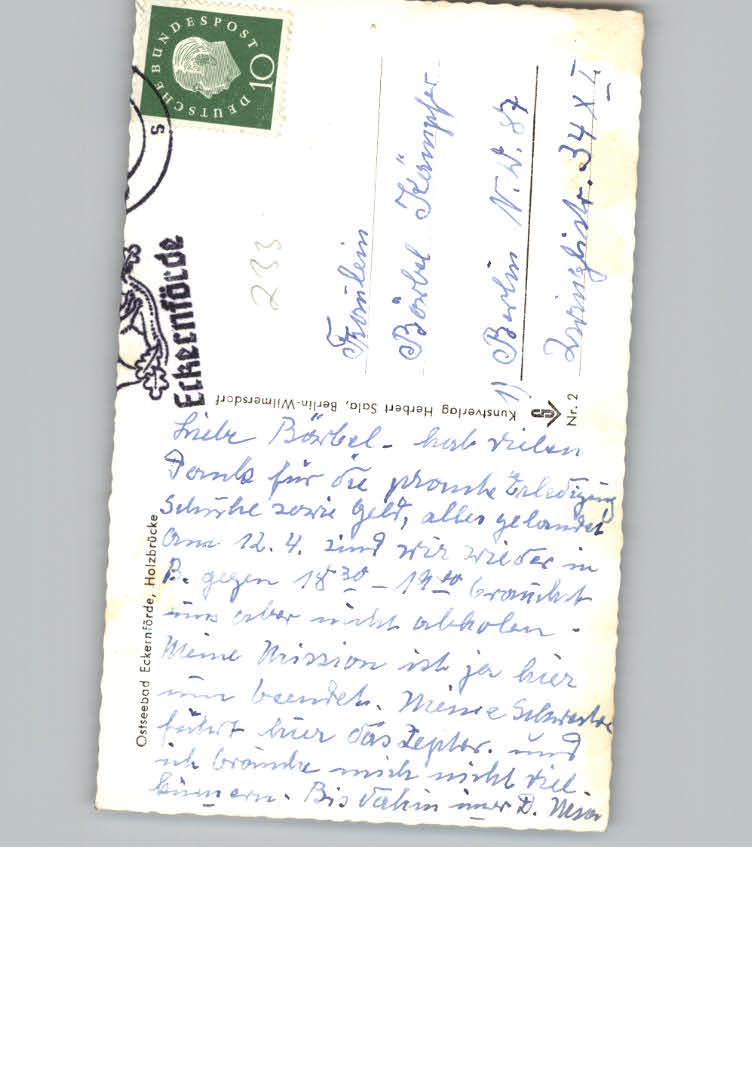 DEUTSCHE BUNDESPOST
10
S
Eckernförde
233
Fräulein
Bärbel Kämpfer
1) Berlin N.W. 87
Zwinglistr. 34 XI
Kunstverlag Herbert Sala, Berlin-Wilmersdorf
Nr. 2
Ostseebad Eckernförde, Holzbrücke
Liebe Bärbel - hab vielen
Dank für die prompte Erledigung
Schuhe sowie Geld, alles gelandet
Am 12.4. sind wir wieder in
B. gegen 18 30 - 19 00 braucht
uns aber nicht abholen.
Meine Mission ist ja hier
nun beendet. Meine Schwester
führt hier das Zepter. und
ich brauche mich nicht viel
kümmern. Bis dahin imer D.